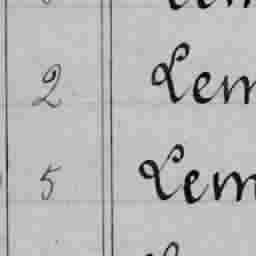 2 Lem
5 Lem